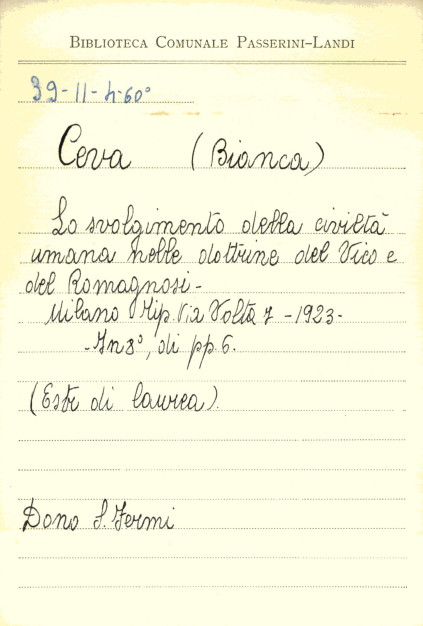 BIBLIOTECA COMUNALE PASSERINI-LANDI
39-11-4-60°
Ceva (Bianca)
Lo svolgimento della civiltà
umana nelle dottrine del Vico e
del Romagnosi-
Milano Tip. Via Volta 7 - 1923-
- In 8°, di pp. 6.
(Estr di laurea).
Dono S. Fermi